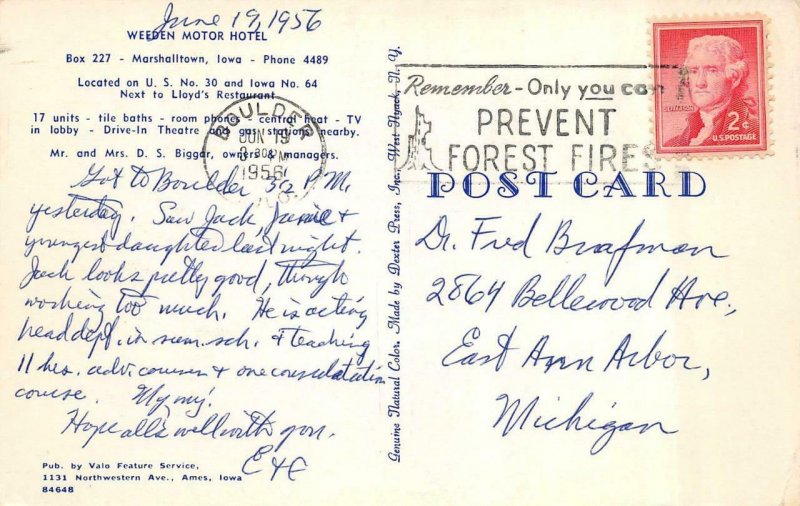 June 19, 1956
WEEDEN MOTOR HOTEL
Box 227 - Marshalltown, Iowa - Phone 4489
Located on U. S. No. 30 and Iowa No. 64
Next to Lloyd's Restaurant
17 units - tile baths - room phones - central heat - TV
in lobby - Drive-In Theatre and gas station nearby.
Mr. and Mrs. D. S. Biggar, owners managers.
Got to Boulder 3½ P.M.
yesterday. Saw Jack, &
youngest daughter last night.
Jack looks pretty good, though
working too much. He is acting
head dept. in sum. sch. & teaching
11 hrs. adv. courses & one consultation
course. My my!
Hope all's well with you.
E & C
Pub. by Valo Feature Service,
1131 Northwestern Ave., Ames, Iowa
84648
Genuine Natural Color. Made by Dexter Press, Inc., West Nyack, N. Y.
BOULDER
JUN 19
PM
1956
COLO.
Remember - Only you can
PREVENT
FOREST FIRES
JEFFERSON
2¢
U.S. POSTAGE
POST CARD
Dr. Fred Brafman
2864 Bellewood Ave.,
East Ann Arbor,
Michigan